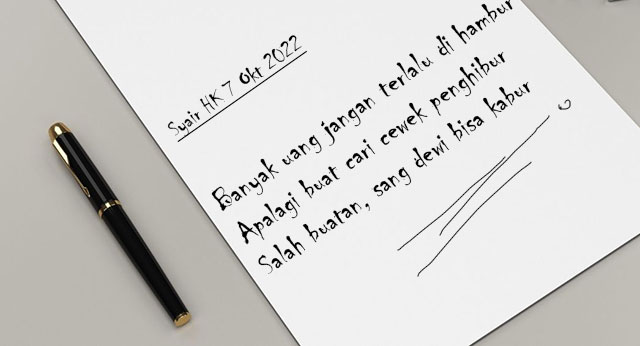 Syair HK 7 Okt 2022
Banyak uang jangan terlalu di hambur
Apalagi buat cari cewek penghibur
Salah buatan, sang dewi bisa kabur